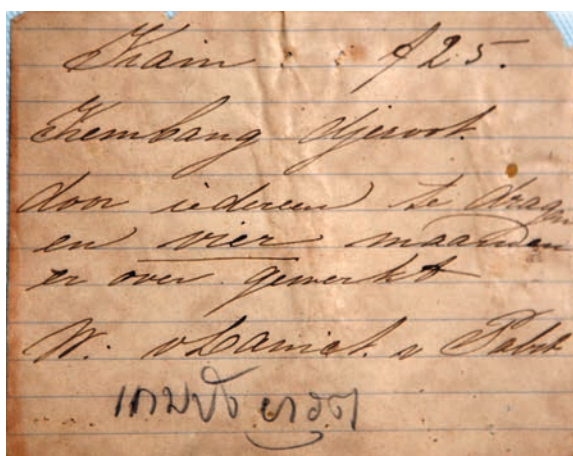 Kain f 25.
Kembang djerook
door iedereen te dragen
en vier maanden
er over gewerkt
W. v Lawick. v Pabst